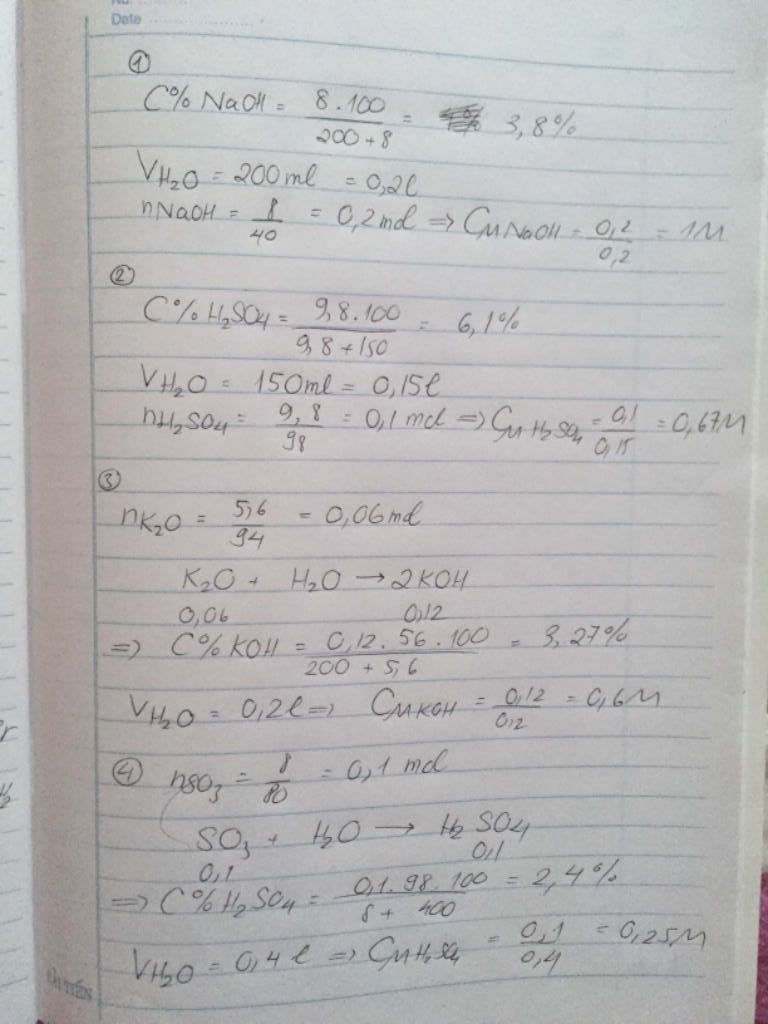 Date
①
C% NaOH = 8.100 / 200+8 = 3,8%
VH₂O = 200ml = 0,2l
nNaOH = 8/40 = 0,2mol => CM NaOH = 0,2/0,2 = 1M
②
C% H₂SO₄ = 9,8.100 / 9,8+150 = 6,1%
VH₂O = 150ml = 0,15l
nH₂SO₄ = 9,8/98 = 0,1 mol => CM H₂SO₄ = 0,1/0,15 = 0,67M
③
nK₂O = 5,6/94 = 0,06mol
K₂O + H₂O → 2KOH
0,06 0,12
=> C% KOH = 0,12.56.100 / 200 + 5,6 = 3,27%
VH₂O = 0,2l => CM KOH = 0,12/0,2 = 0,6M
④ nSO₃ = 8/80 = 0,1 mol
SO₃ + H₂O → H₂SO₄
0,1 0,1
=> C% H₂SO₄ = 0,1.98.100 / 8+ 400 = 2,4%
VH₂O = 0,4l => CM H₂SO₄ = 0,1/0,4 = 0,25M